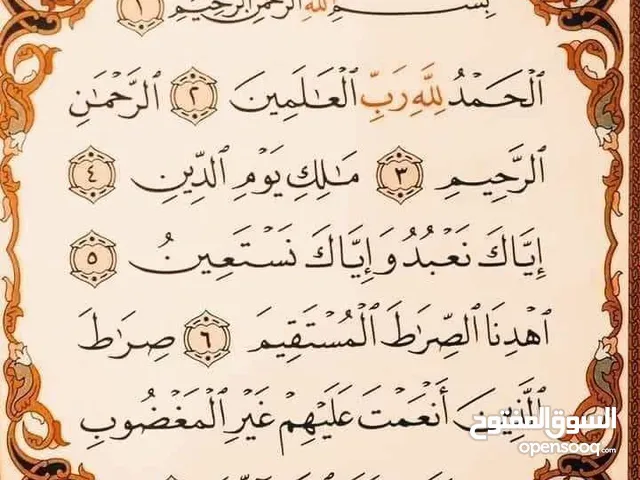 بِسْمِ ٱللَّهِ ٱلرَّحْمَٰنِ ٱلرَّحِيمِ ١
ٱلْحَمْدُ لِلَّهِ رَبِّ ٱلْعَٰلَمِينَ ٢ ٱلرَّحْمَٰنِ
ٱلرَّحِيمِ ٣ مَٰلِكِ يَوْمِ ٱلدِّينِ ٤
إِيَّاكَ نَعْبُدُ وَإِيَّاكَ نَسْتَعِينُ ٥
ٱهْدِنَا ٱلصِّرَٰطَ ٱلْمُسْتَقِيمَ ٦ صِرَٰطَ
ٱلَّذِينَ أَنْعَمْتَ عَلَيْهِمْ غَيْرِ ٱلْمَغْضُوبِ
السوق المفتوح
opensooq.com